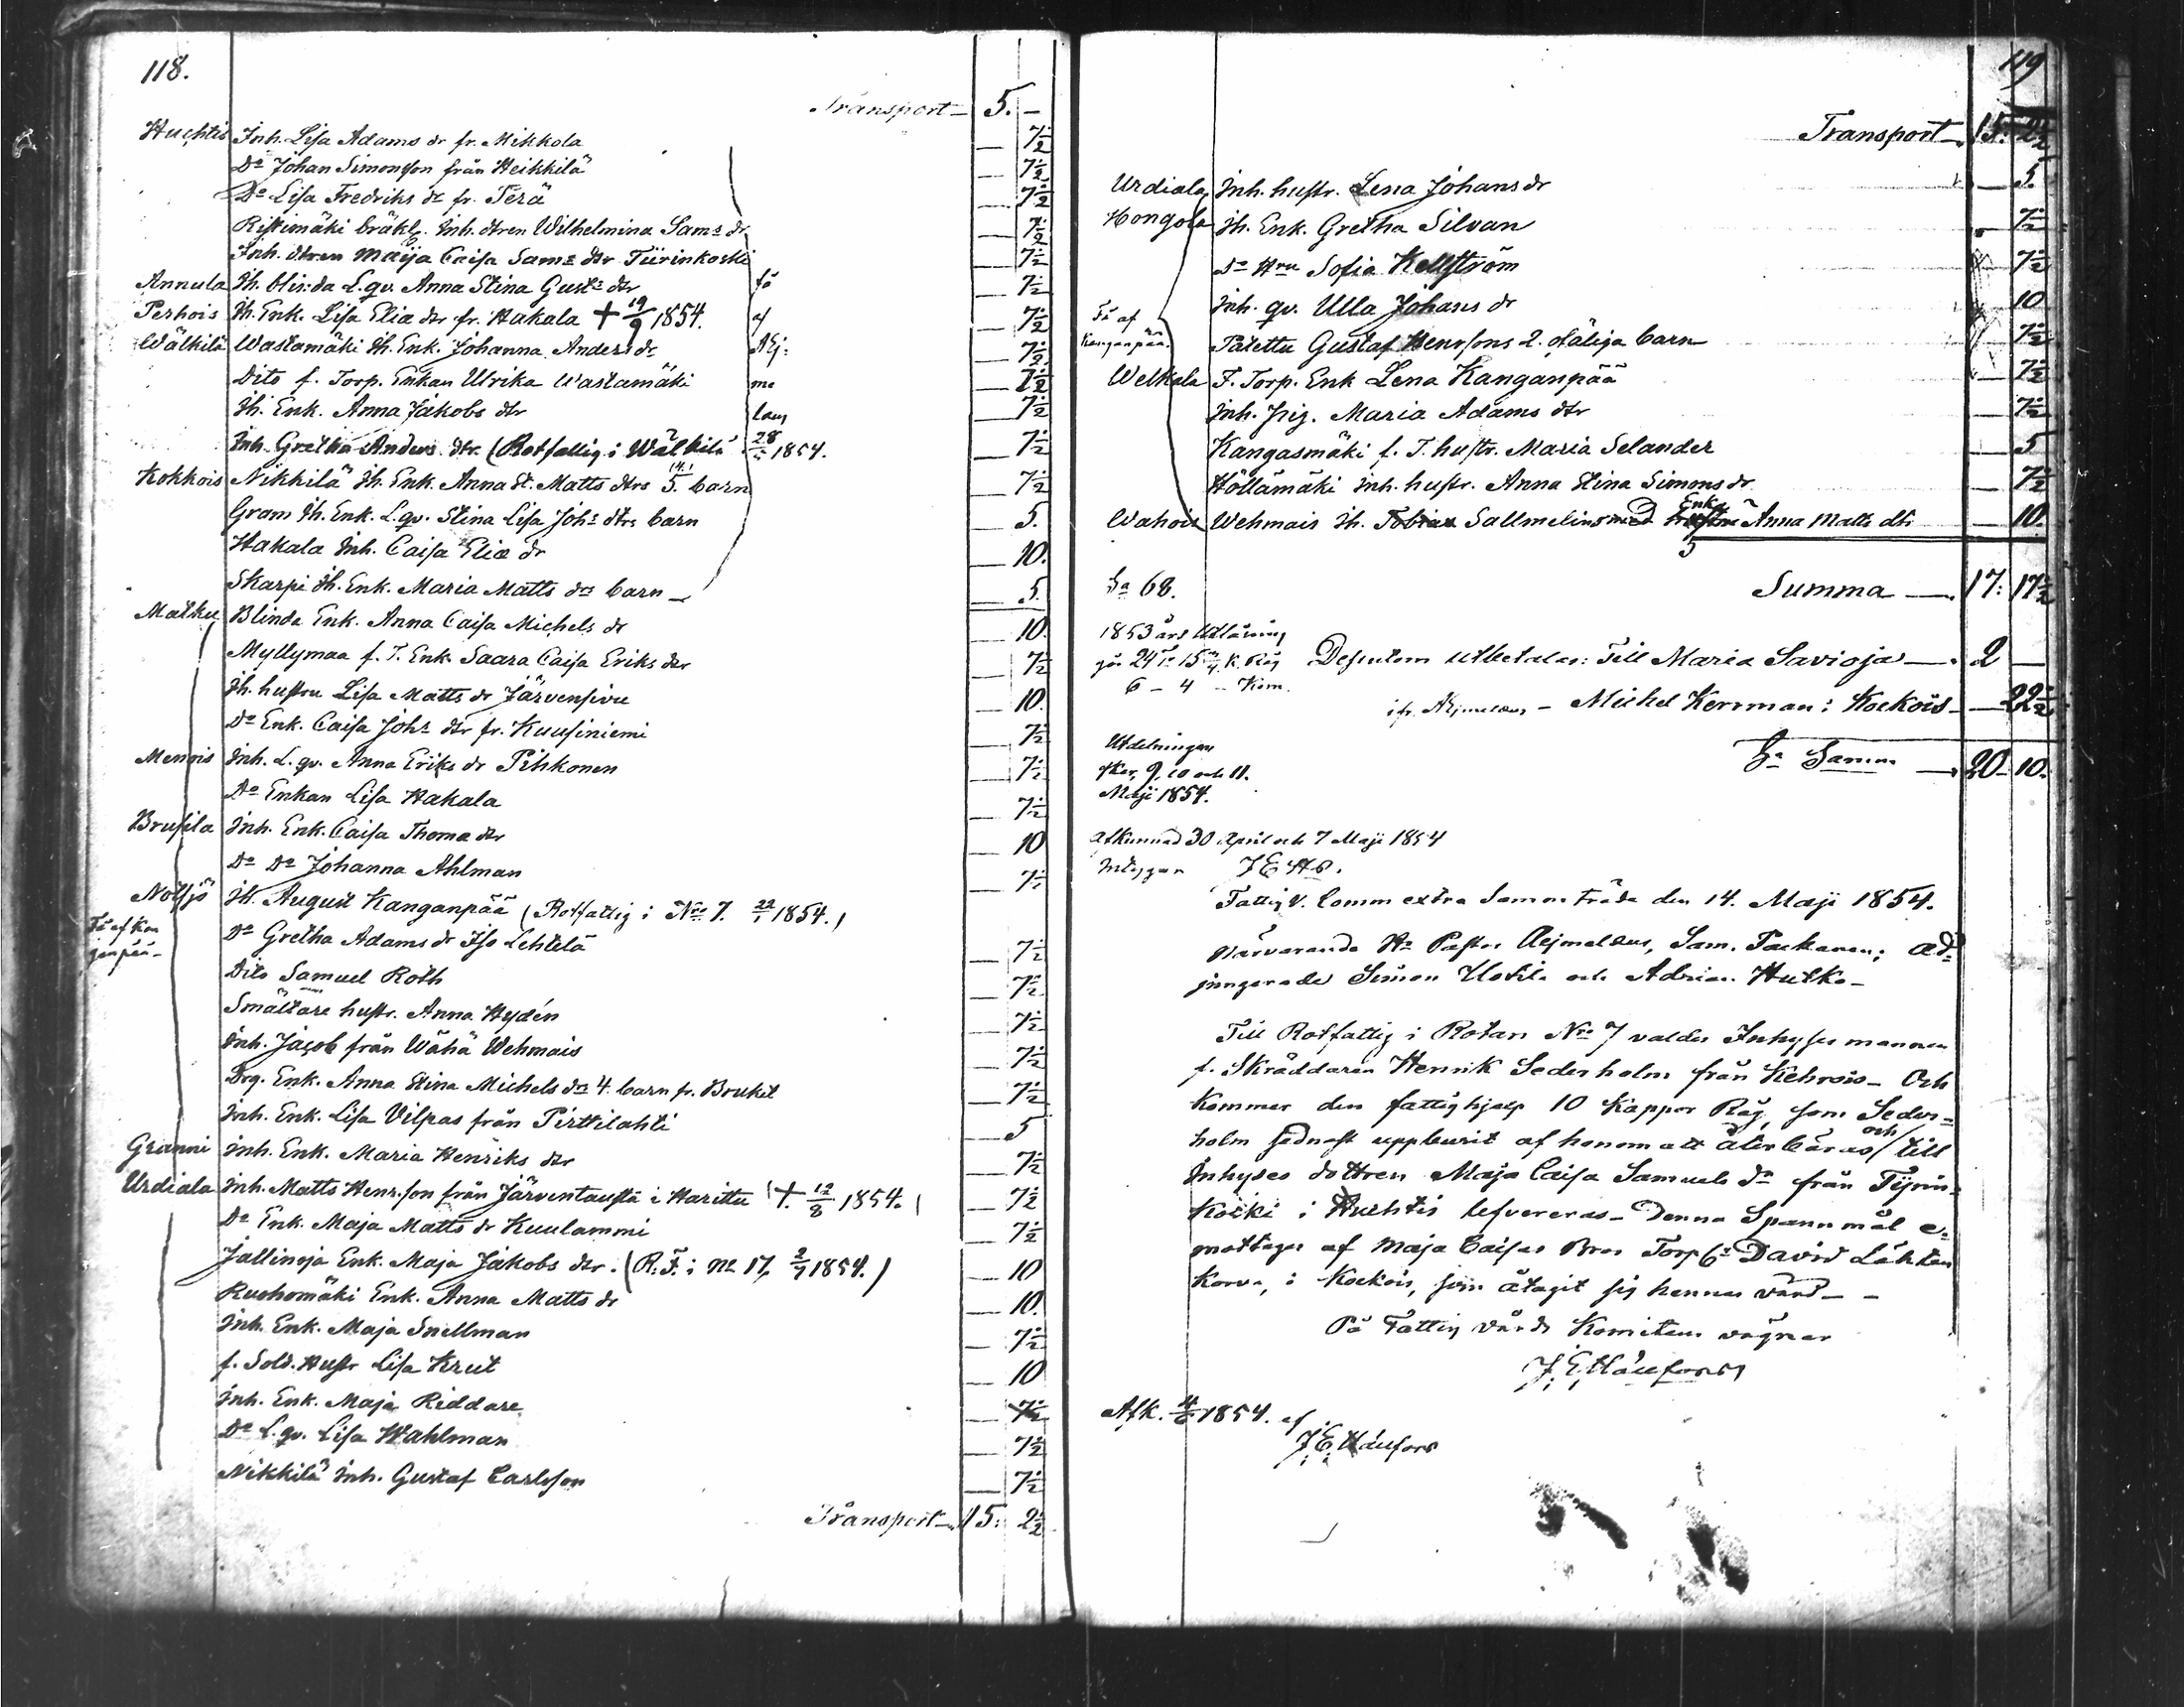 118.
Transport 5. –
Huchtis Inh. Lisa Adams dr fr. Mikkola — 7½
Do Johan Simonsson från Heikkilä — 7½
Do Lisa Fredriks dr fr. Terä — 7½
Ristimäki bräkl. Inh. dtren Wilhelmina Sams dr — 7½
Inh. dtren Maija Caisa Sams dtr Türinkoski — 7½
Annula Ih. blinda L. qv. Anna Stina Gust: dtr få — 7½
Perhois Ih. Enk. Lisa Eliæ dtr fr. Hakala + 19/9 1854. af — 7½
Wälkilä Wastamäki Ih. Enk. Johanna Anders dr Ej: — 7½
Dito f. Torp. Enkan Ulrika Wastamäki me — 7½
Ih. Enk. Anna Jakobs dtr laus — 7½
Inh. Gretha Anders dtr (Rotfattig i Wälkilä 28 1854. — 7½
Kokkois Nikkilä Ih. Enk. Anna St. Matts dtrs 5. barn — 7½
Gram Ih. Enk. L. qv. Stina Lisa Johs dtrs barn — 5.
Hakala Inh. Caisa Eliæ dr — 10.
Skarpi Ih. Enk. Maria Matts drs barn — 5.
Matku Blinda Enk. Anna Caisa Michels dr — 10.
Myllymaa f. T. Enk. Saara Caisa Eriks dtr — 7½
Ih. hustru Lisa Matts dr Järvensivu — 10.
Do Enk. Caisa Johs dtr fr. Kuusiniemi — 7½
Menois Inh. L. qv. Anna Eriks dr Pihkonen — 7½
Do Enkan Lisa Hakala — 7½
Brusila Inh. Enk. Caisa Thomæ dtr — 10
Do Do Johanna Ahlman — 7½
Notsjö Ih. August Kanganpää (Rotfattig i Nro 7. 22/1 1854.)
Få af Kan
ganpää –
Do Gretha Adams dr Iso Lehtelä — 7½
Dito Samuel Roth — 7½
Smältare hustr. Anna Hydén — 7½
Inh. Jacob från Wähä Wehmais — 7½
Drg. Enk. Anna Stina Michels drs 4. barn fr. Bruket — 7½
Inh. Enk. Lisa Vilpas från Pirttilahti — 5
Granni Inh. Enk. Maria Henriks dtr — 7½
Urdiala Inh. Matts Henrsson från Järventausta i Harittu (+. 12/8 1854.) — 7½
Do Enk. Maja Matts dr Kuulammi — 7½
Jallinoja Enk. Maja Jakobs dtr. (R. F. i No 17, 2/7 1854.) — 10
Ruohomäki Enk. Anna Matts dr — 10.
Inh. Enk. Maja Snellman — 7½
f. Sold. Hustr Lisa Krut — 10
Inh. Enk. Maja Riddare — 7½
Do L. qv. Lisa Wahlman — 7½
Nikkilä Inh. Gustaf Carlsson — 7½
Transport 15: 2½
119
Transport 15: 2½
Urdiala Inh. hustr. Lena Johans dr — 5.
Hongola Ih. Enk. Gretha Silvan — 7½
Do Hru Sofia Hellström — 7½
Inh. qv. Ulla Johans dr — 10
Få af
Kanganpää. Patettu Gustaf Henrssons 2. fåliga barn — 7½
Welkala F. Torp. Enk Lena Kanganpää — 7½
Inh. pig. Maria Adams dtr — 7½
Kangasmäki f. T. hustr. Maria Selander — 5
Höllämäki Inh. hustr. Anna Stina Simons dr — 7½
Wahois Wehmais Ih. Tobias Sallmelins Enka Anna Matts dtr — 10.
Sa 68. Summa — 17: 17½
1853 års Utlåning
gör 24 To 15¾ K. Råg Dessutom utbetalas: Till Maria Savioja — 2 —
6 – 4 – Korn.
Michel Kerrman i Kockois — 22½
Sa Sarum — 20 – 10.
Utdelningen
sker 9, 10 och 11.
Maji 1854.
Afkunnad 30 April och 7 Maji 1854
intygar J E Hs.
Fattig V. Comm extra Sammanträde den 14. Maji 1854.
Närvarande Hr Pastor Aejmelæus, Sam. Packanen; ad-
jungerade Simon Uotila och Adrian Hutko –
Till Rotfattig i Rotan Nro 7 valdes Inhyses mannen
f. Skräddaren Henrik Sederholm från Kehrois – Och
kommer den fattighjelp 10 Kappor Råg, som Seder-
holm sednast uppburit af honom att återbäras och till
Inhyses dottren Maja Caisa Samuels dr från Tyrin-
koski i Huchtis lefvereras – Denna Spannmål e-
mottages af Maja Caisas Bror Torp. David Lähten
korva, i Kockois, som åtagit sig hennes vård – –
På Fattig vårds Komitens vägnar
Afk. 4/6 1854. af